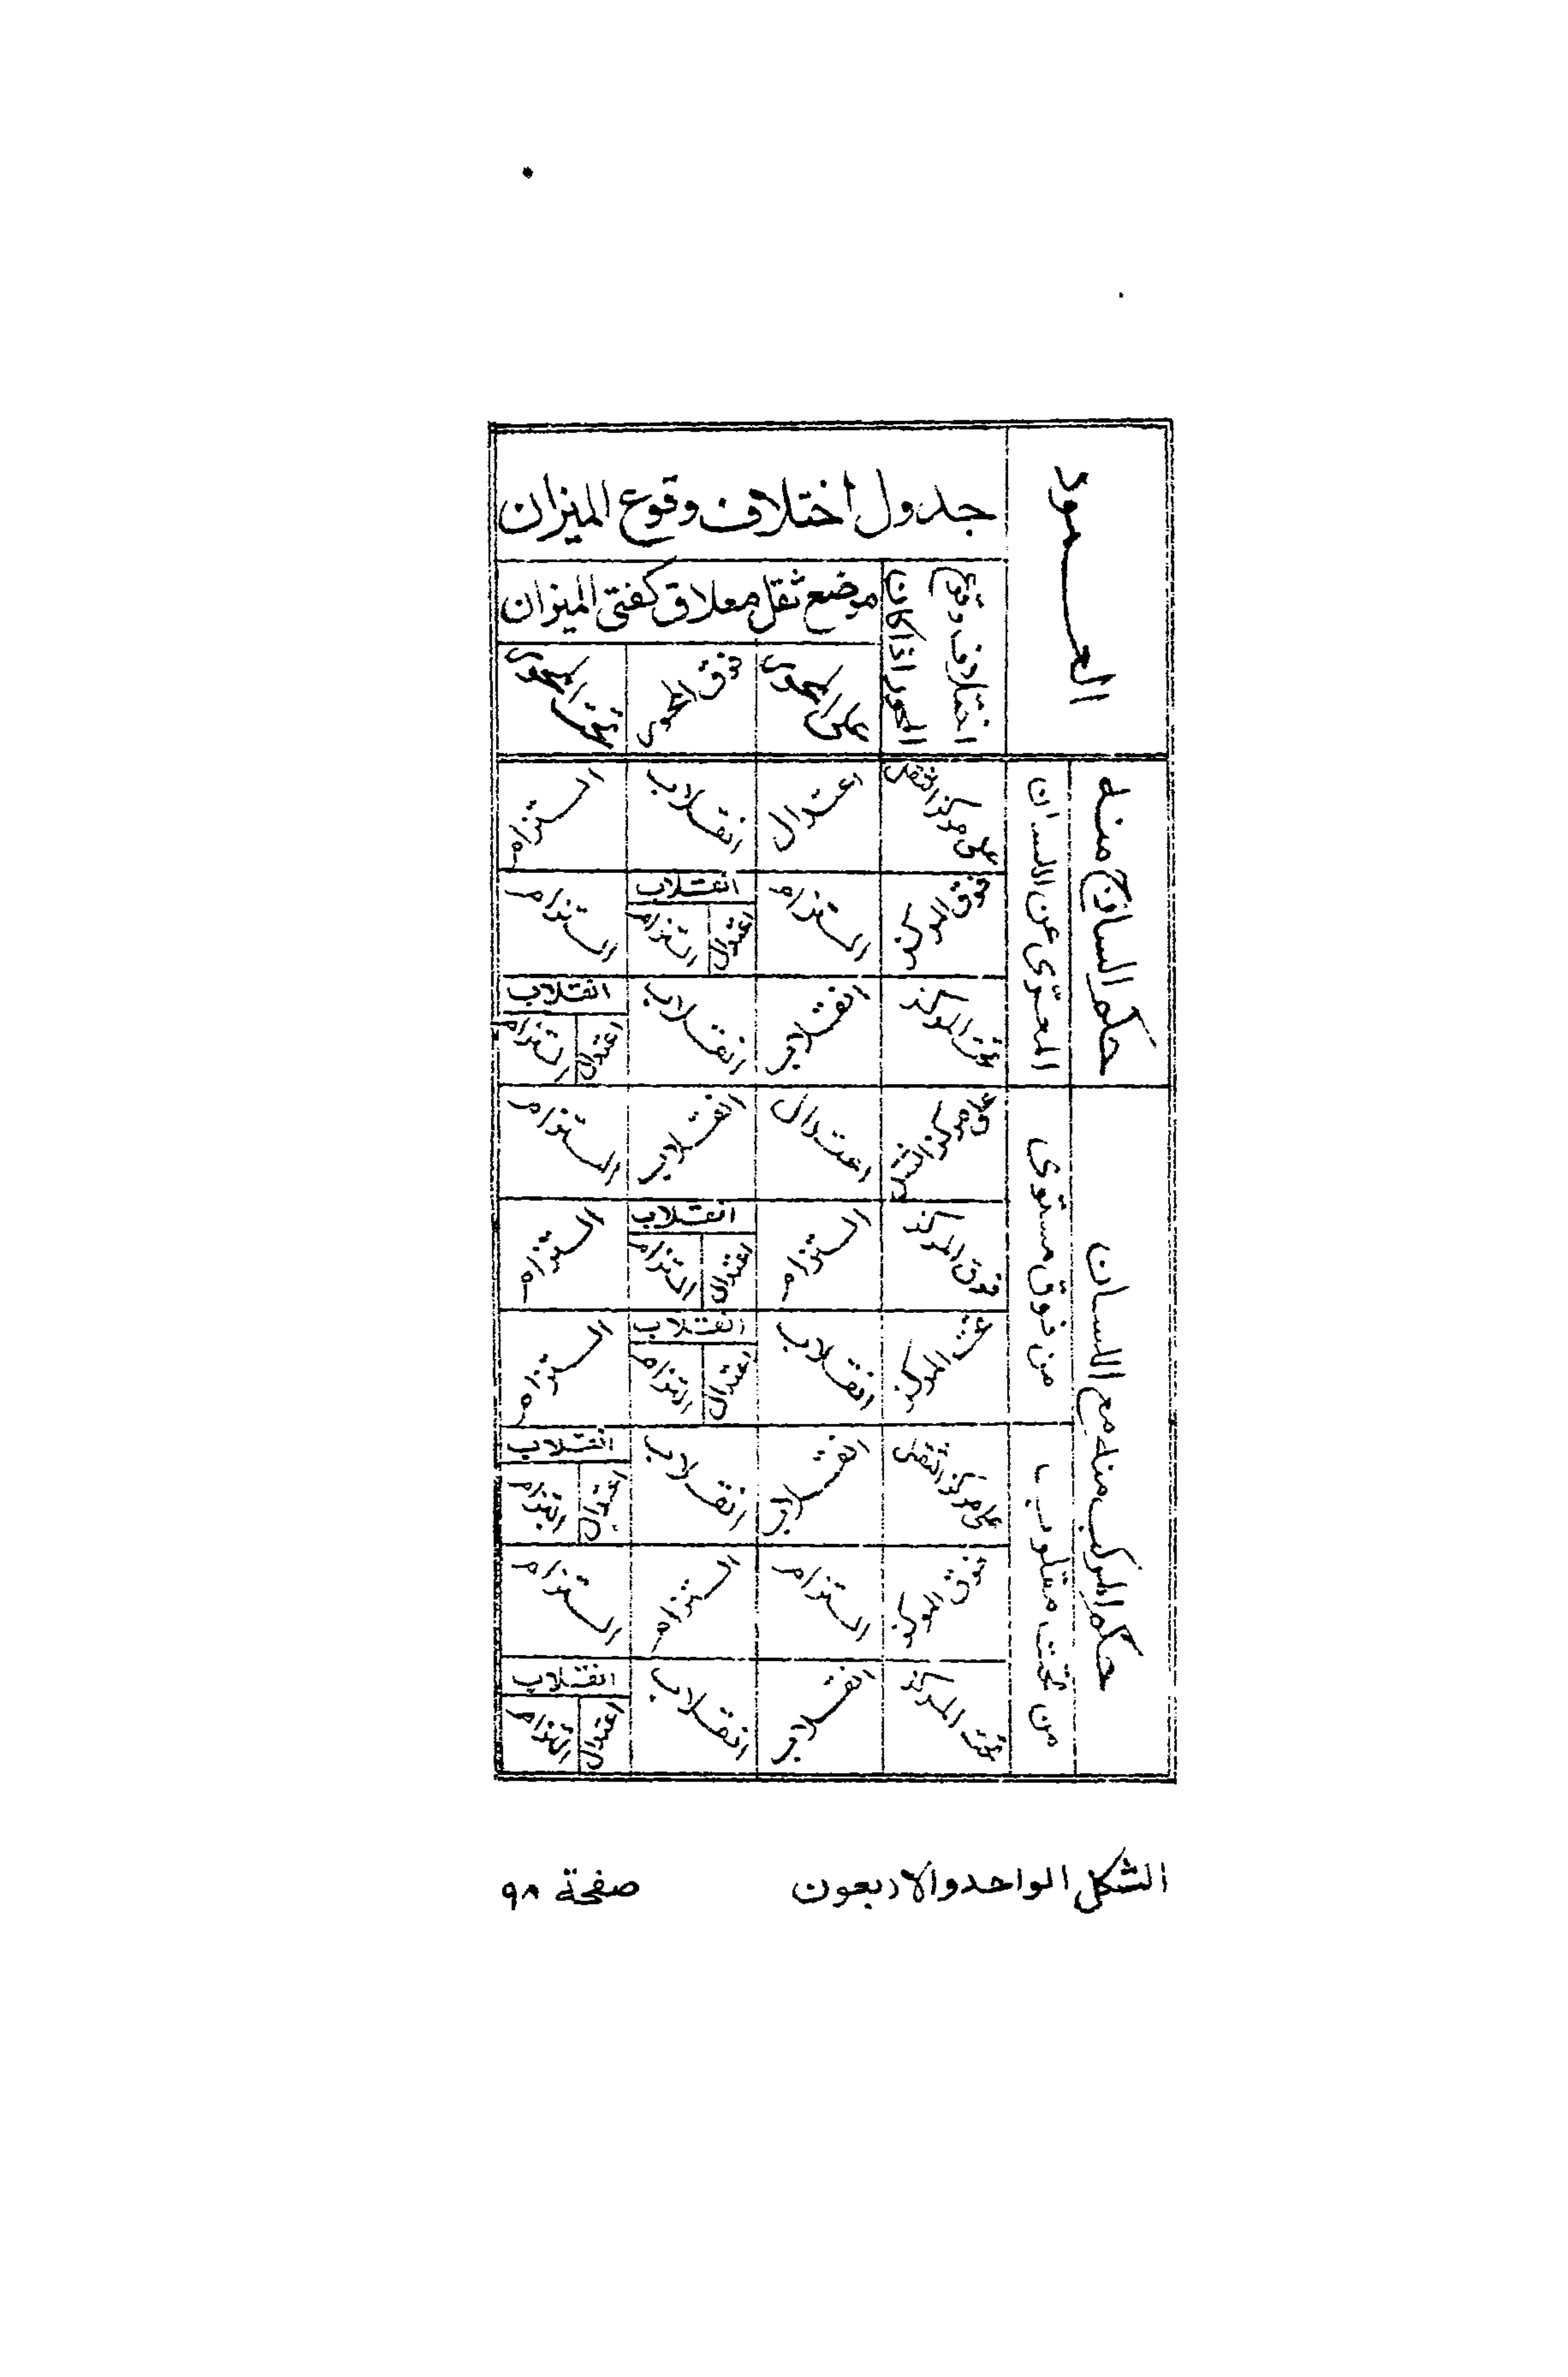 العمود
جدول اختلاف وقوع الميزان
اختلاف وقوع المحور اذا كان
موضع ثقل معلاق كفتي الميزان
على المحور
فوق المحور
تحت المحور
حكم الساذج منه
المعرّى عن اللسان
على مركز الثقل
اعتدال
انقلاب
التزام
فوق المركز
التزام
انقلاب
اعتدال
التزام
التزام
تحت المركز
انقلاب
انقلاب
انقلاب
اعتدال
التزام
حكم المركب منه مع اللسان
من فوق مستوى
اعتدال
انقلاب
التزام
فوق المركز
التزام
انقلاب
اعتدال
التزام
التزام
تحت المركز
انقلاب
انقلاب
اعتدال
التزام
التزام
من تحت مقلوب
على مركز الثقل
انقلاب
انقلاب
انقلاب
اعتدال
التزام
فوق المركز
التزام
التزام
التزام
تحت المركز
انقلاب
انقلاب
انقلاب
اعتدال
التزام
الشكل الواحد والاربعون
صفحة ٩٨